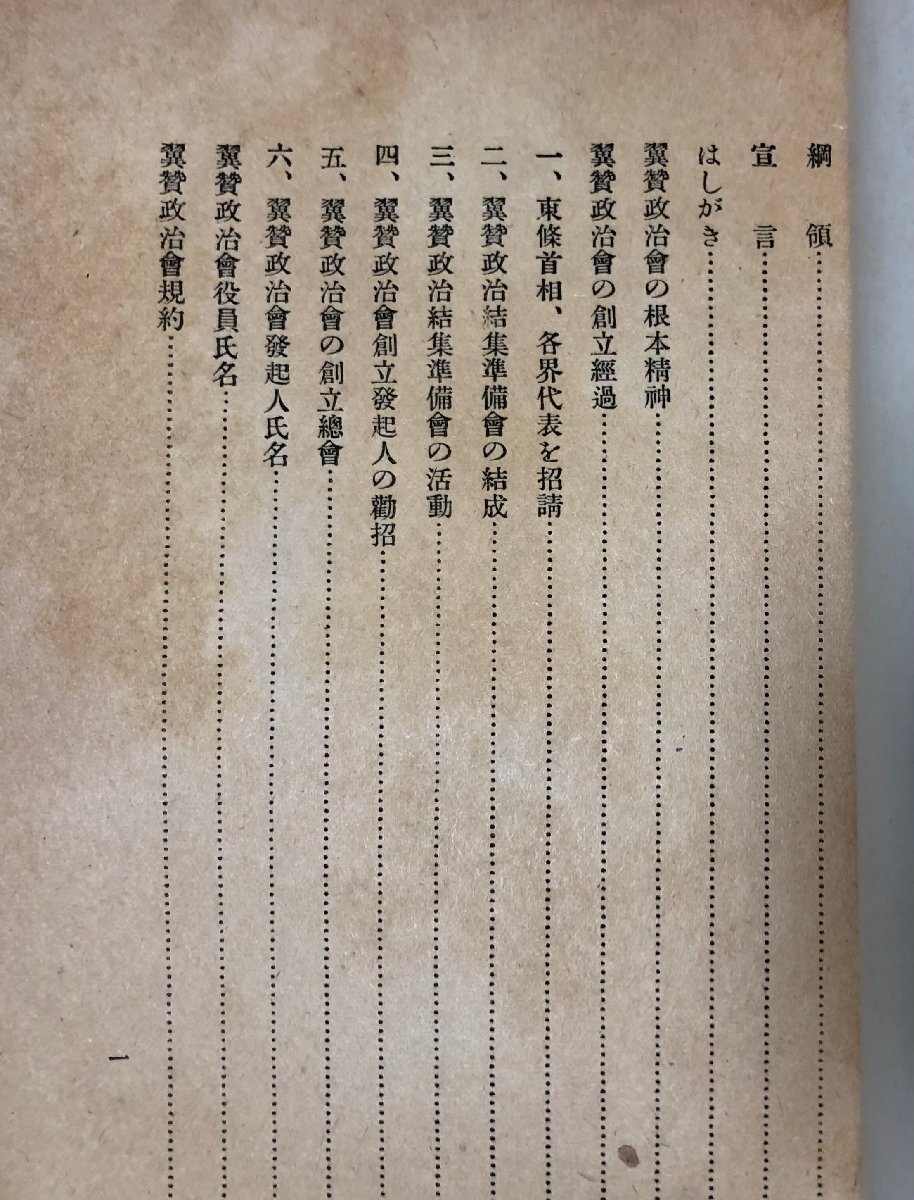 綱領
宣言
はしがき
翼贊政治會の根本精神
翼贊政治會の創立經過
一、東條首相、各界代表を招請
二、翼贊政治結集準備會の結成
三、翼贊政治結集準備會の活動
四、翼贊政治會創立發起人の勸招
五、翼贊政治會の創立總會
六、翼贊政治會發起人氏名
翼贊政治會役員氏名
翼贊政治會規約
一